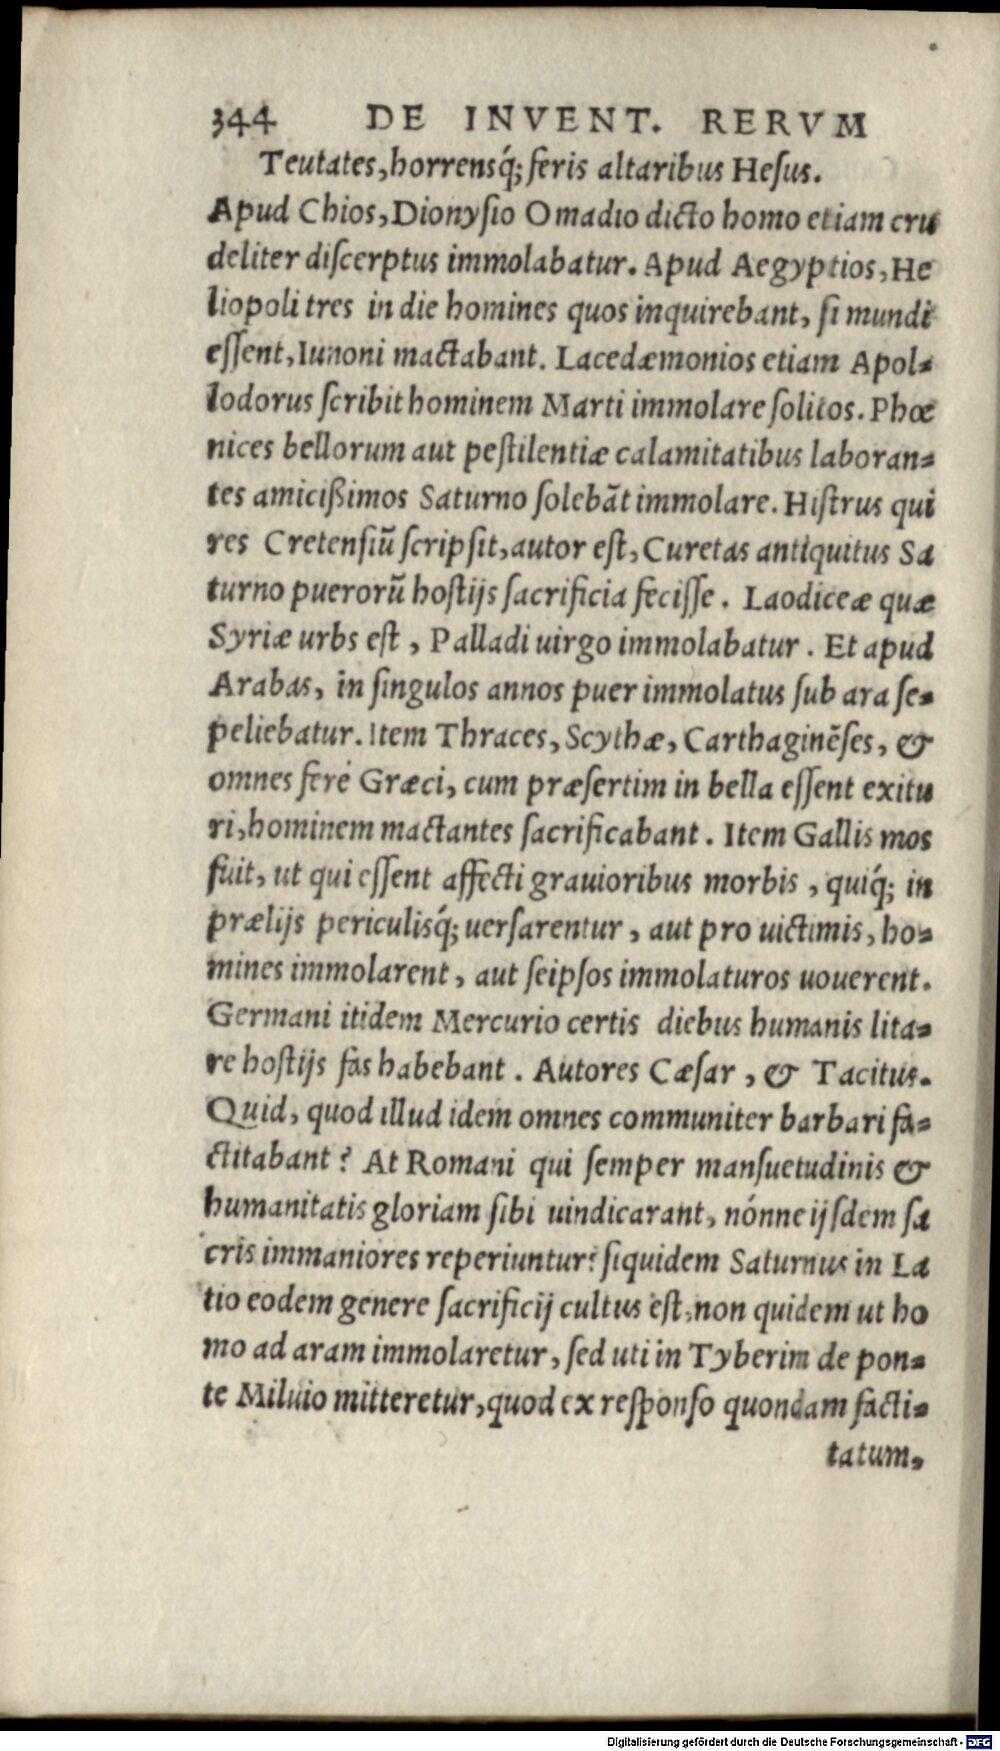 344 DE INVENT. RERVM
Teutates, horrensq́; feris altaribus Hesus.
Apud Chios, Dionysio Omadio dicto homo etiam cru
deliter discerptus immolabatur. Apud Aegyptios, He
liopoli tres in die homines quos inquirebant, si mundi
essent, Iunoni mactabant. Lacedæmonios etiam Apol-
lodorus scribit hominem Marti immolare solitos. Phœ
nices bellorum aut pestilentiæ calamitatibus laboran-
tes amicißimos Saturno solebãt immolare. Histrus qui
res Cretensiũ scripsit, autor est, Curetas antiquitus Sa
turno puerorũ hostijs sacrificia fecisse. Laodiceæ quæ
Syriæ urbs est, Palladi uirgo immolabatur. Et apud
Arabas, in singulos annos puer immolatus sub ara se-
peliebatur. Item Thraces, Scythæ, Carthaginẽses, &
omnes ferè Græci, cum præsertim in bella essent exitu
ri, hominem mactantes sacrificabant. Item Gallis mos
fuit, ut qui essent affecti grauioribus morbis, quiq́; in
prælijs periculisq́; uersarentur, aut pro uictimis, ho-
mines immolarent, aut seipsos immolaturos uouerent.
Germani itidem Mercurio certis diebus humanis lita-
re hostijs fas habebant. Autores Cæsar, & Tacitus.
Quid, quod illud idem omnes communiter barbari fa-
ctitabant? At Romani qui semper mansuetudinis &
humanitatis gloriam sibi uindicarant, nónne ijsdem sa
cris immaniores reperiuntur? siquidem Saturnus in La
tio eodem genere sacrificij cultus est, non quidem ut ho
mo ad aram immolaretur, sed uti in Tyberim de pon-
te Miluio mitteretur, quod ex responso quondam facti-
tatum,
Digitalisierung gefördert durch die Deutsche Forschungsgemeinschaft - DFG